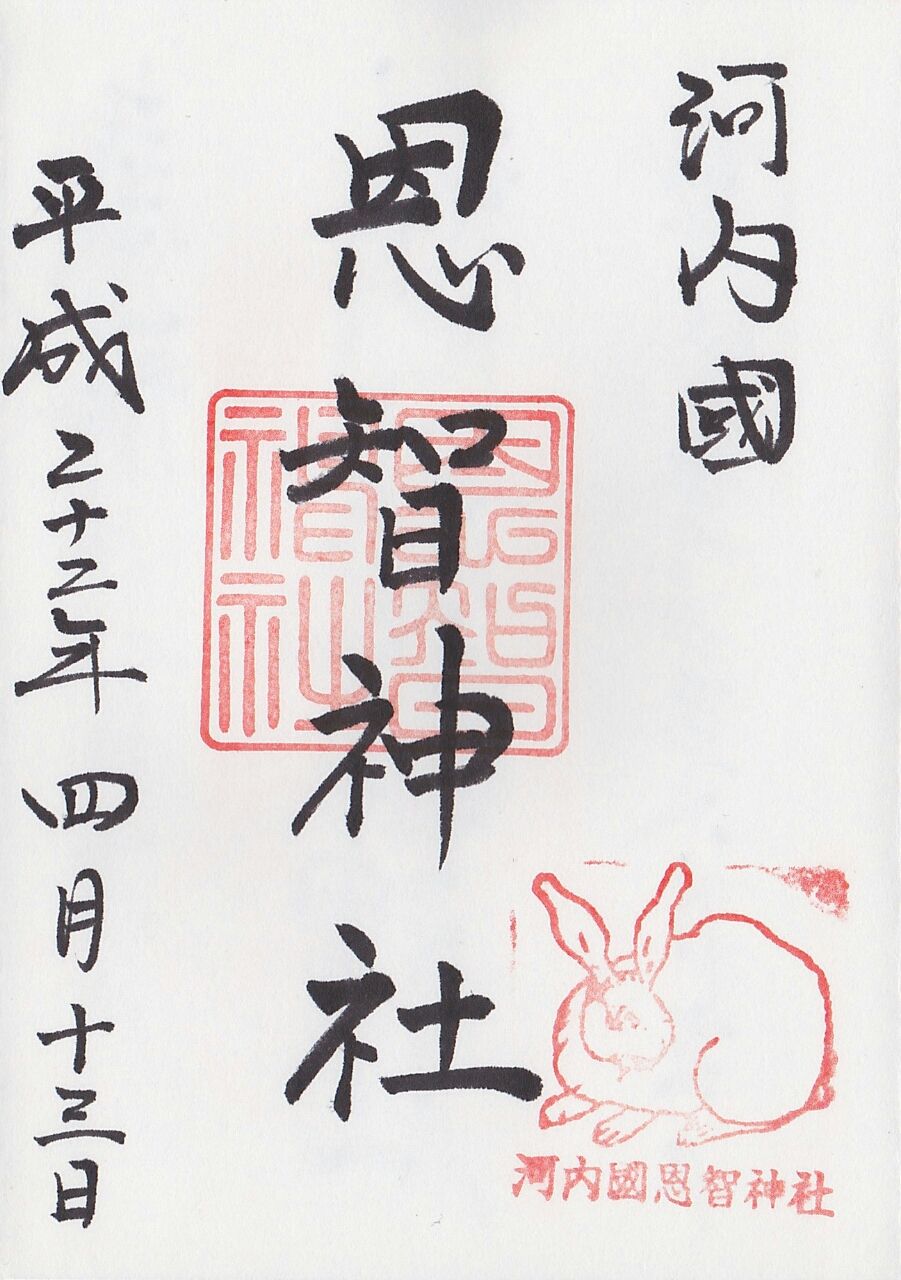 河内國
恩智神社
平成二十二年四月十三日
恩智神社
河内國恩智神社